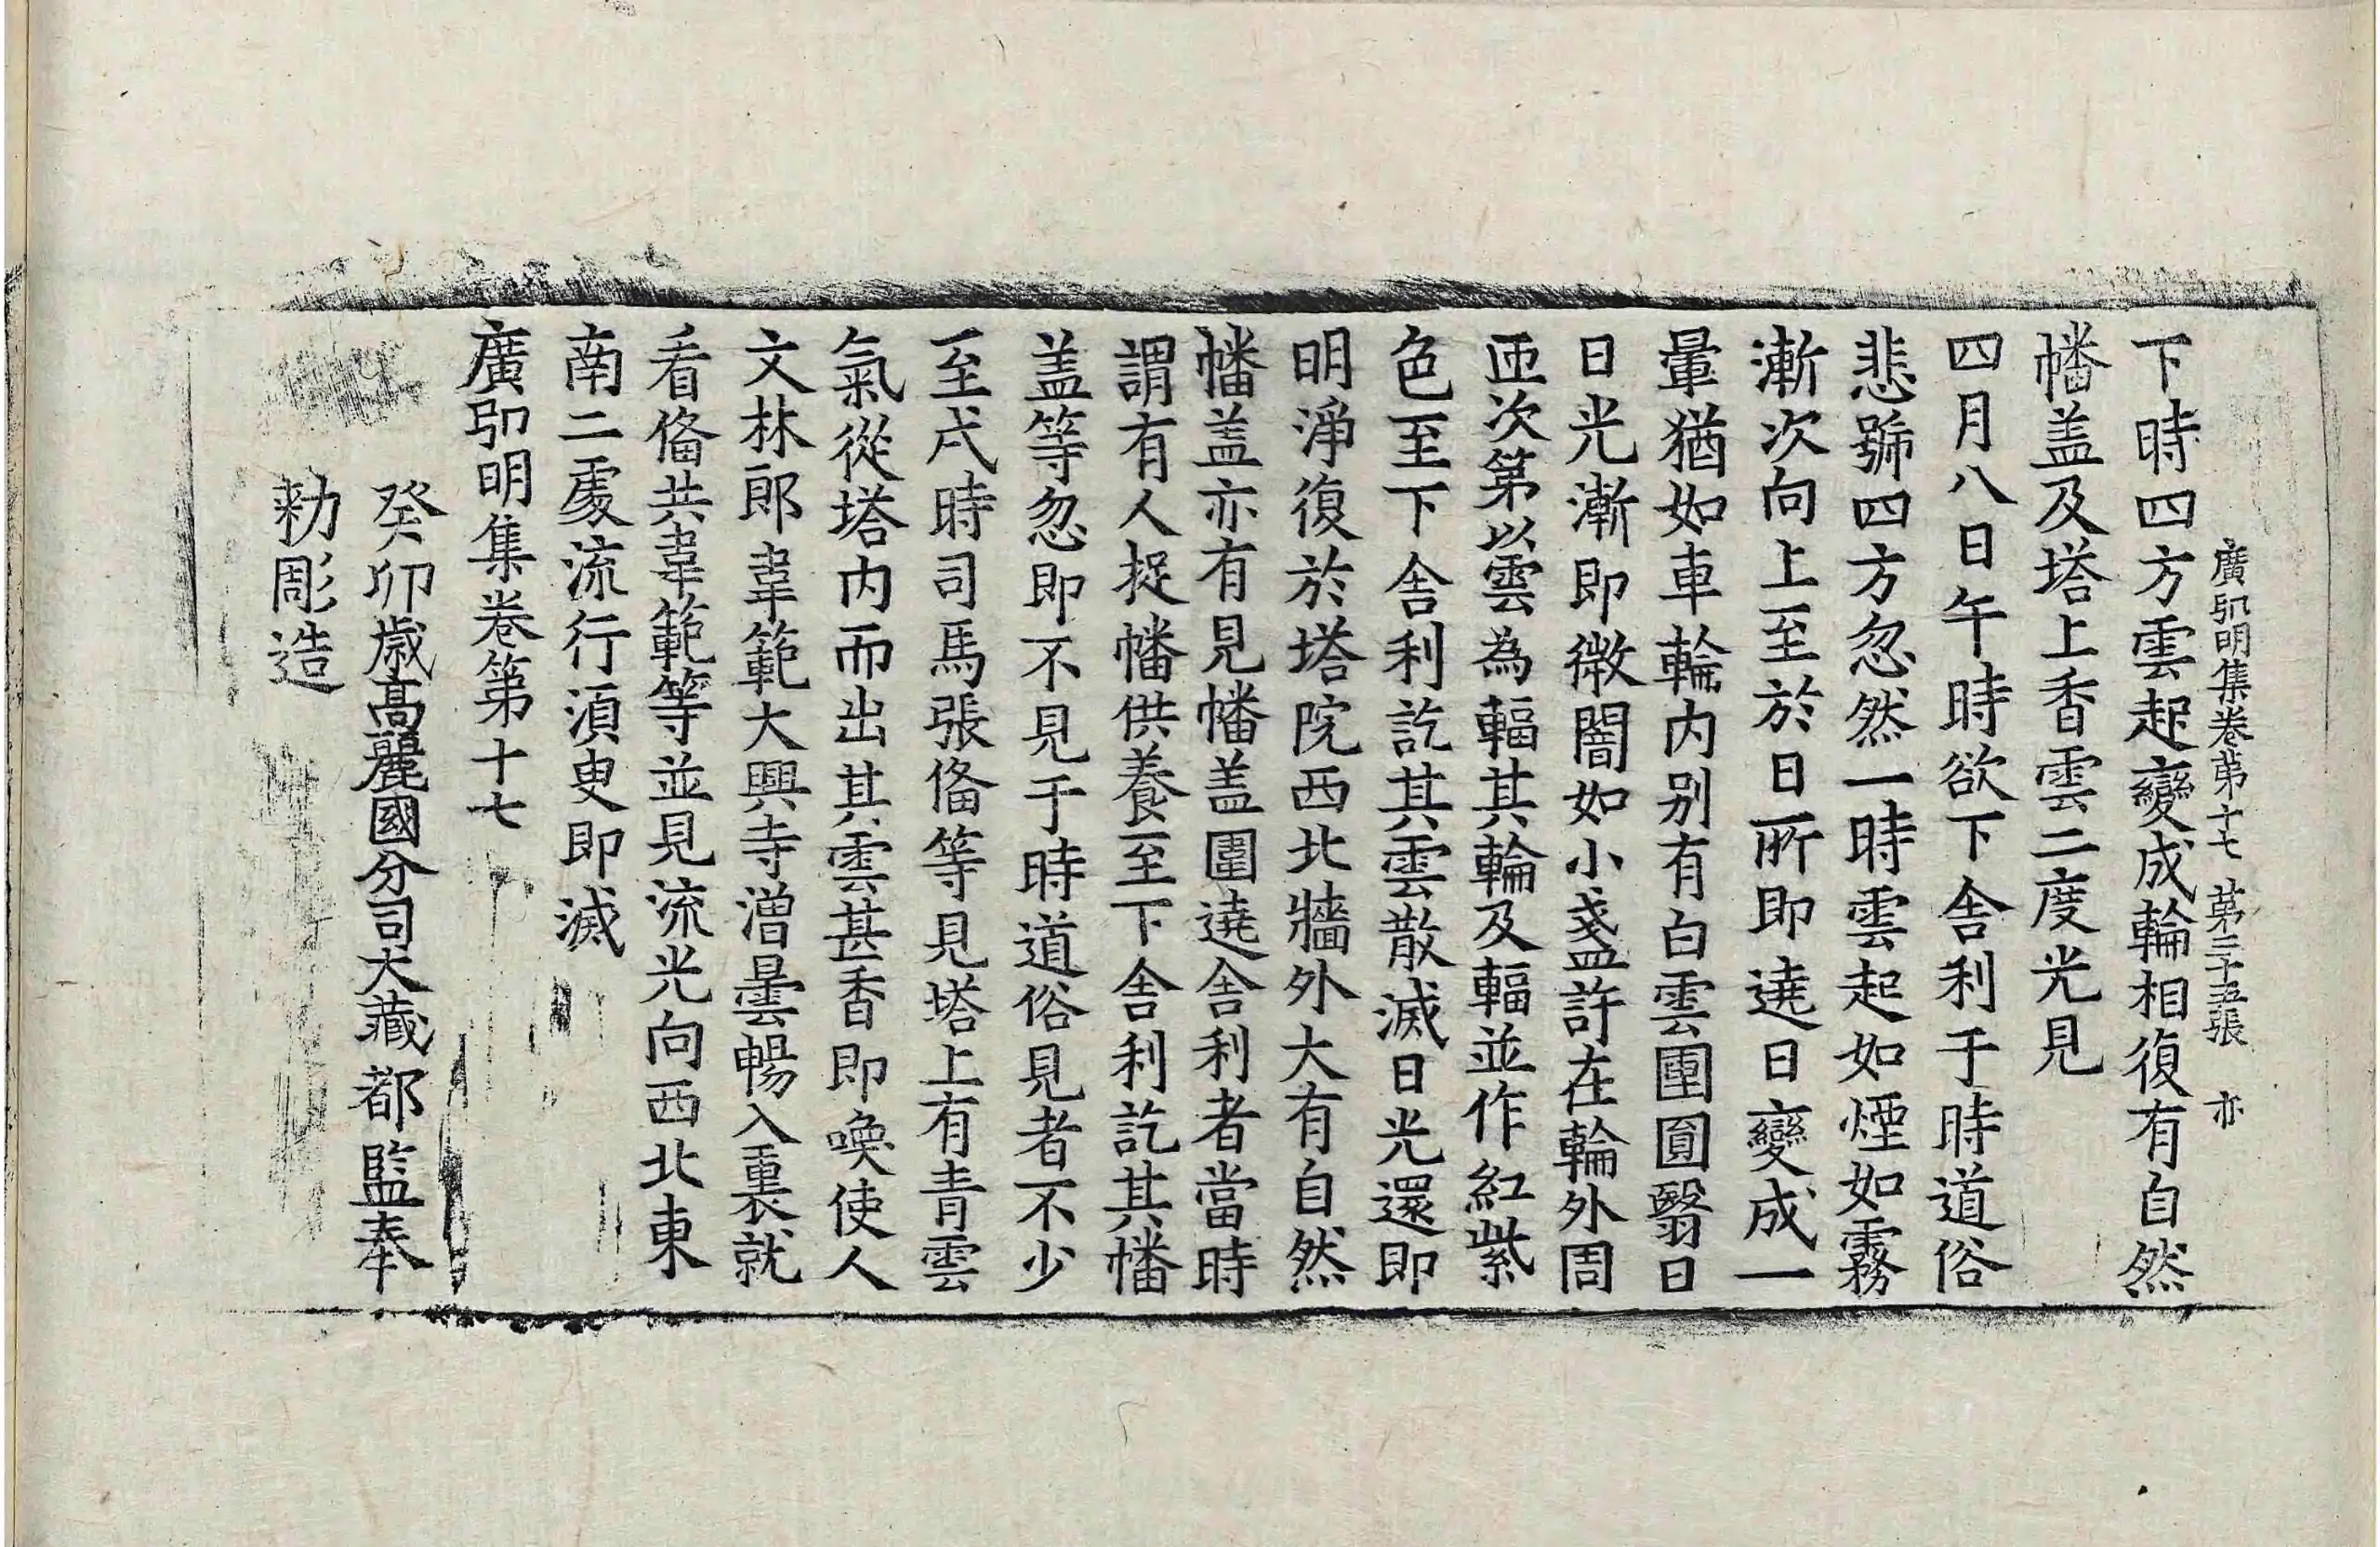 廣弘明集卷第十七 第三十五張 亦
下時四方雲起變成輪相復有自然
幡盖及塔上香雲二度光見
四月八日午時欲下舎利于時道俗
悲號四方忽然一時雲起如煙如霧
漸次向上至於日所即遶日變成一
暈猶如車輪内别有白雲團圓翳日
日光漸即微闇如小盞許在輪外周
匝次第以雲為輻其輪及輻並作紅紫
色至下舎利訖其雲散滅日光還即
明淨復於塔院西北牆外大有自然
幡盖亦有見幡盖圍遶舎利者當時
謂有人捉幡供養至下舎利訖其幡
盖等忽即不見于時道俗見者不少
至戌時司馬張俻等見塔上有青雲
氣從塔内而出其雲甚香即喚使人
文林郎韋範大興寺僧曇暢入裏就
看俻共韋範等並見流光向西北東
南二處流行湏臾即滅
廣弘明集卷第十七
癸卯歳高麗國分司大藏都監奉
勑彫造